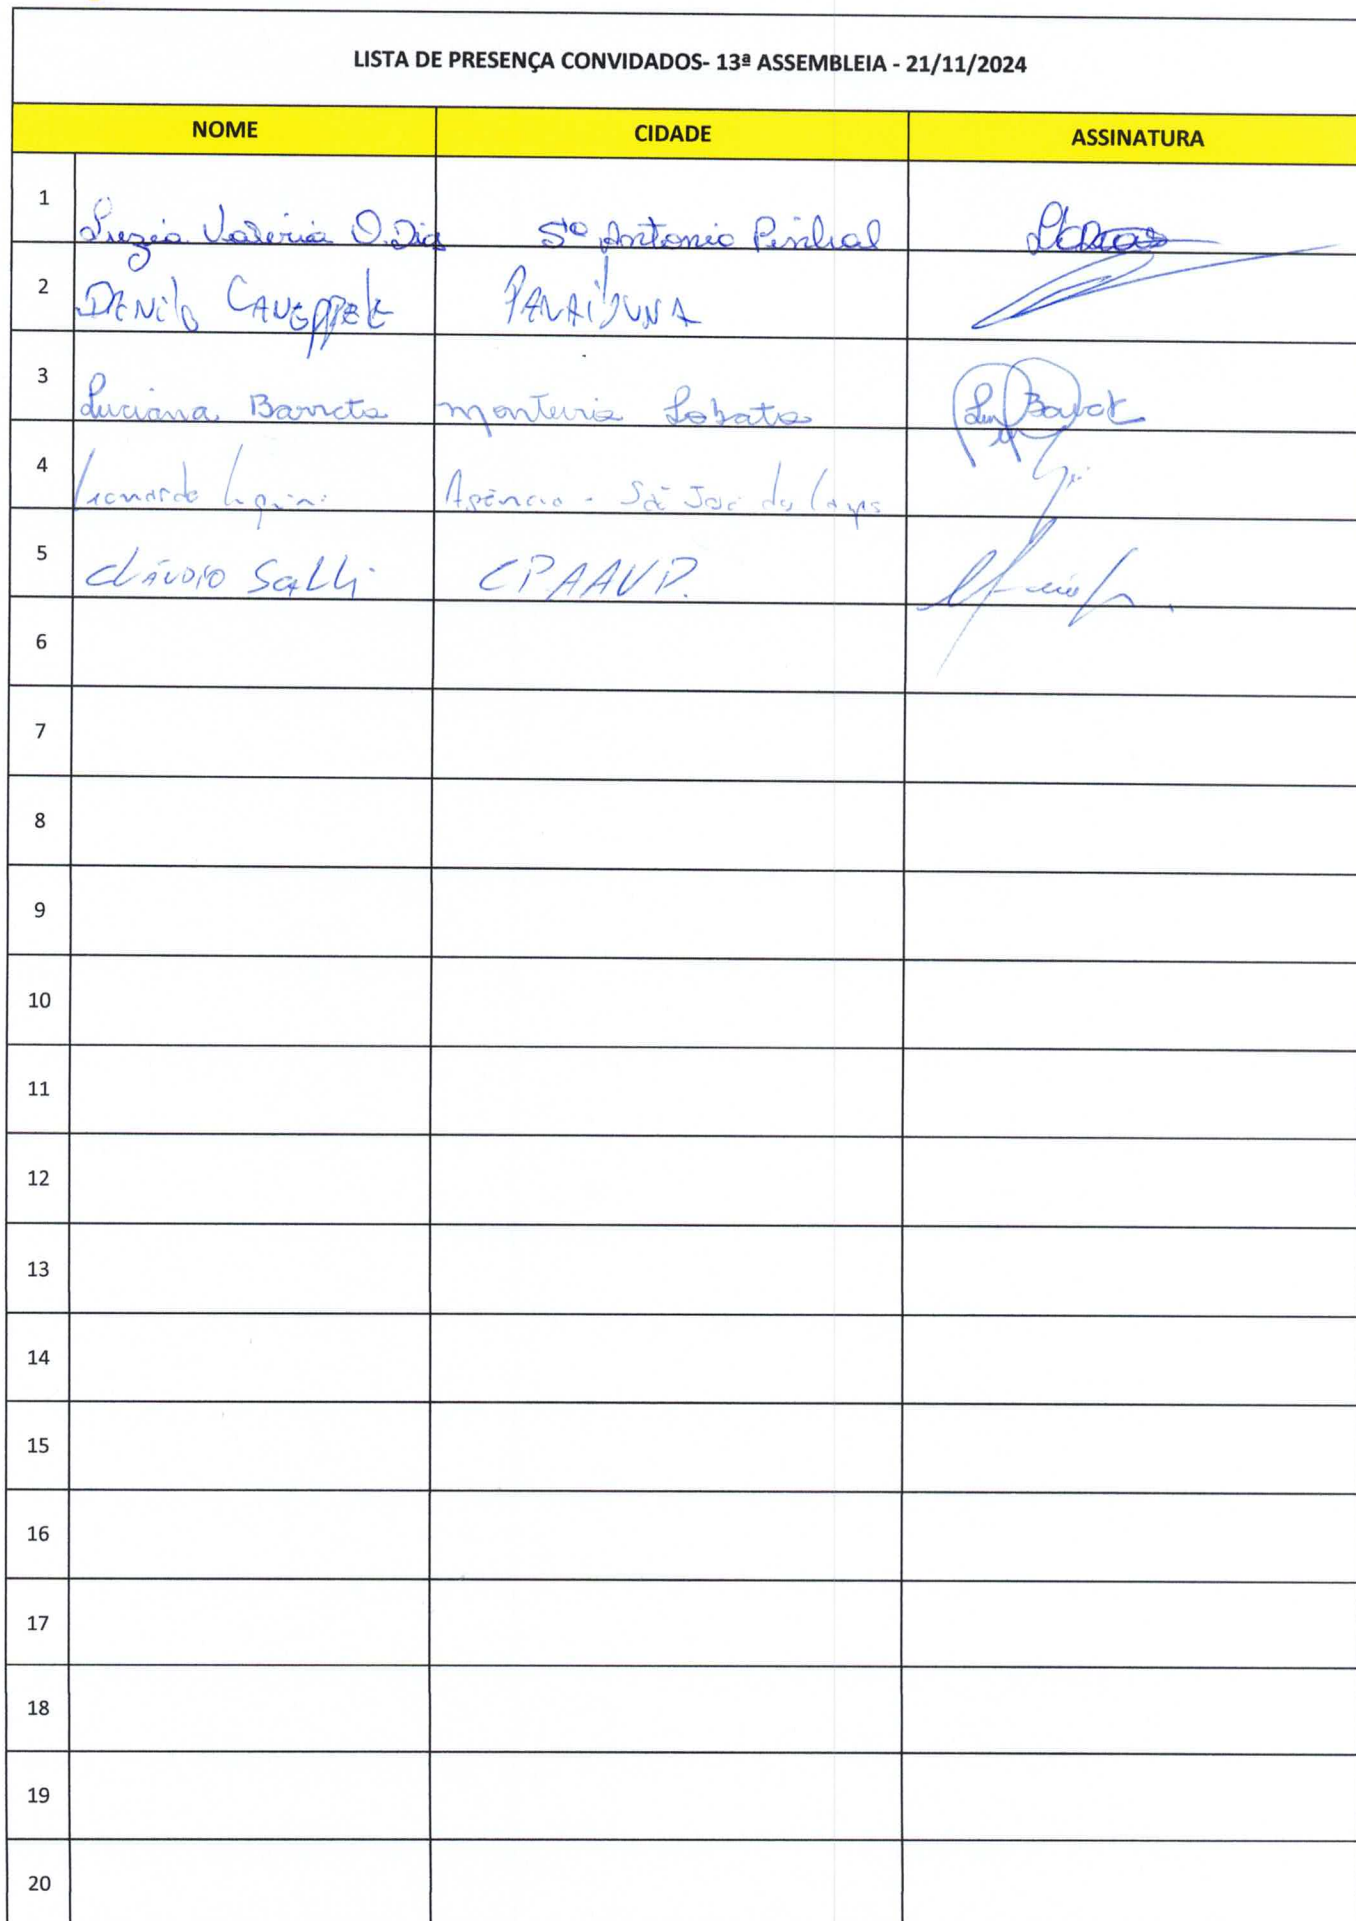 LISTA DE PRESENÇA CONVIDADOS- 13ª ASSEMBLEIA - 21/11/2024
NOME CIDADE ASSINATURA
1 Luzia Valeria O. Dias Stº Antonio Pinhal
2 DANILO PARAIBUNA
3 Luciana Barreto Monteiro Lobato
4 Leonardo Agência - São José dos Campos
5 CLÁUDIO Salli CPAAVP.
6
7
8
9
10
11
12
13
14
15
16
17
18
19
20